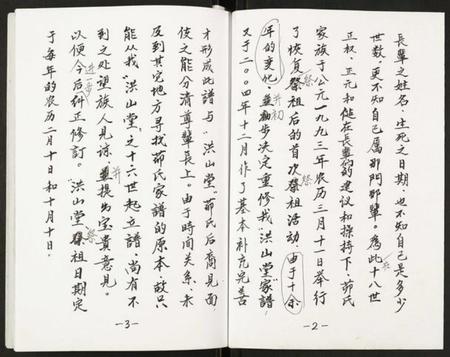 長輩之姓名、生死之日期,也不知自己是多少
世数,更不知自己属那門那輩。為此十八世
正权、正元和健在長輩們的建议和操持下,茆氏
家族于公元一九九三年农历三月十二日举行
了恢复祭祖后的首次祭祖活动,由于十余
年的变化,並初步决定重修我“洪山堂”家譜,
又于二00四年十二月作了基本补充完善
-2-
才形成此譜与“洪山堂”茆氏后裔見面,
使之能分清尊輩長上。由于時間关系,未
及到其它地方寻找茆氏家譜的原本,故只
能从我“洪山堂”之十六世起立譜,尚有不
到之处望族人見谅,並提出宝贵意見。
以便今后进一步纠正修訂。“洪山堂”祭祖日期定
于每年的农历二月十日和十月十日。
-3-